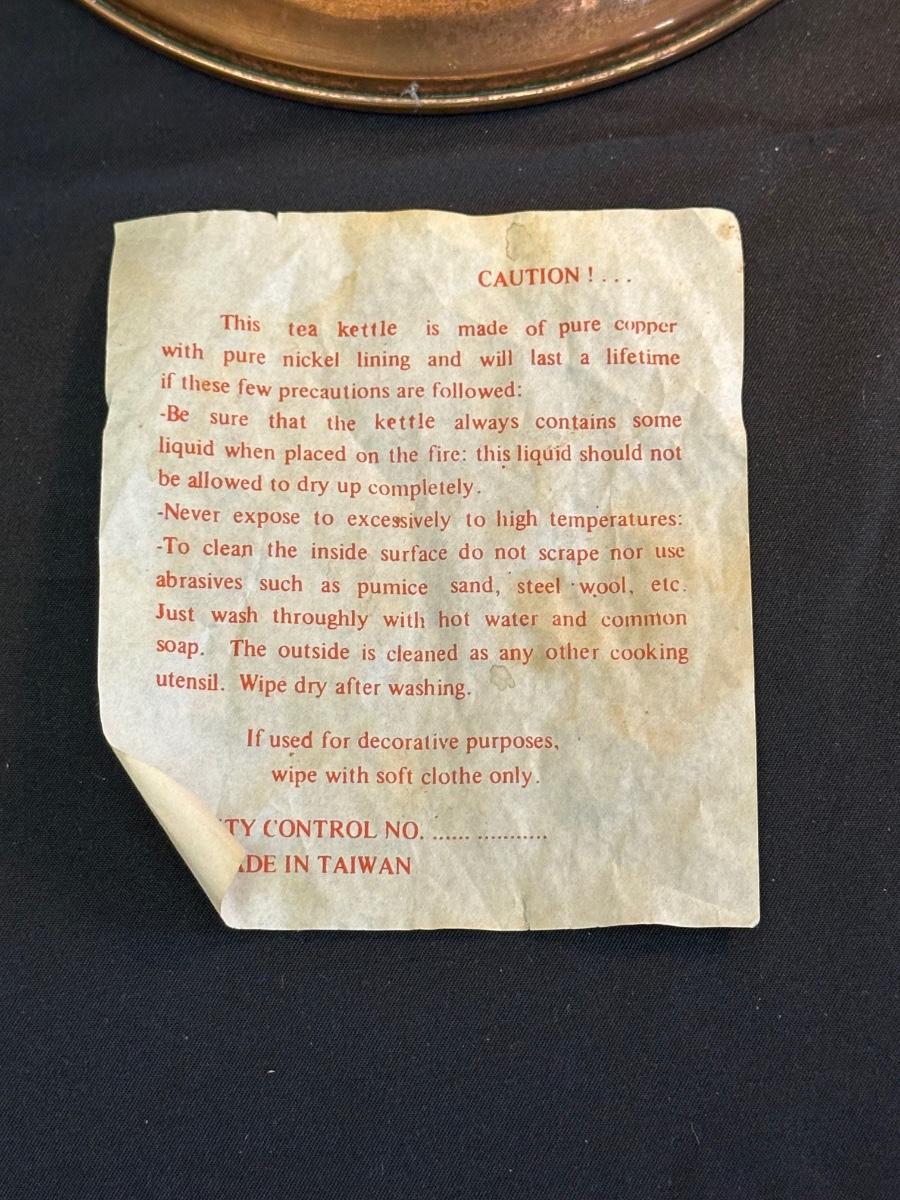 CAUTION ! . . .
This tea kettle is made of pure copper
with pure nickel lining and will last a lifetime
if these few precautions are followed:
-Be sure that the kettle always contains some
liquid when placed on the fire: this liquid should not
be allowed to dry up completely.
-Never expose to excessively to high temperatures:
-To clean the inside surface do not scrape nor use
abrasives such as pumice sand, steel wool, etc.
Just wash throughly with hot water and common
soap. The outside is cleaned as any other cooking
utensil. Wipe dry after washing.
If used for decorative purposes,
wipe with soft clothe only.
TY CONTROL NO. ...... ...........
ADE IN TAIWAN